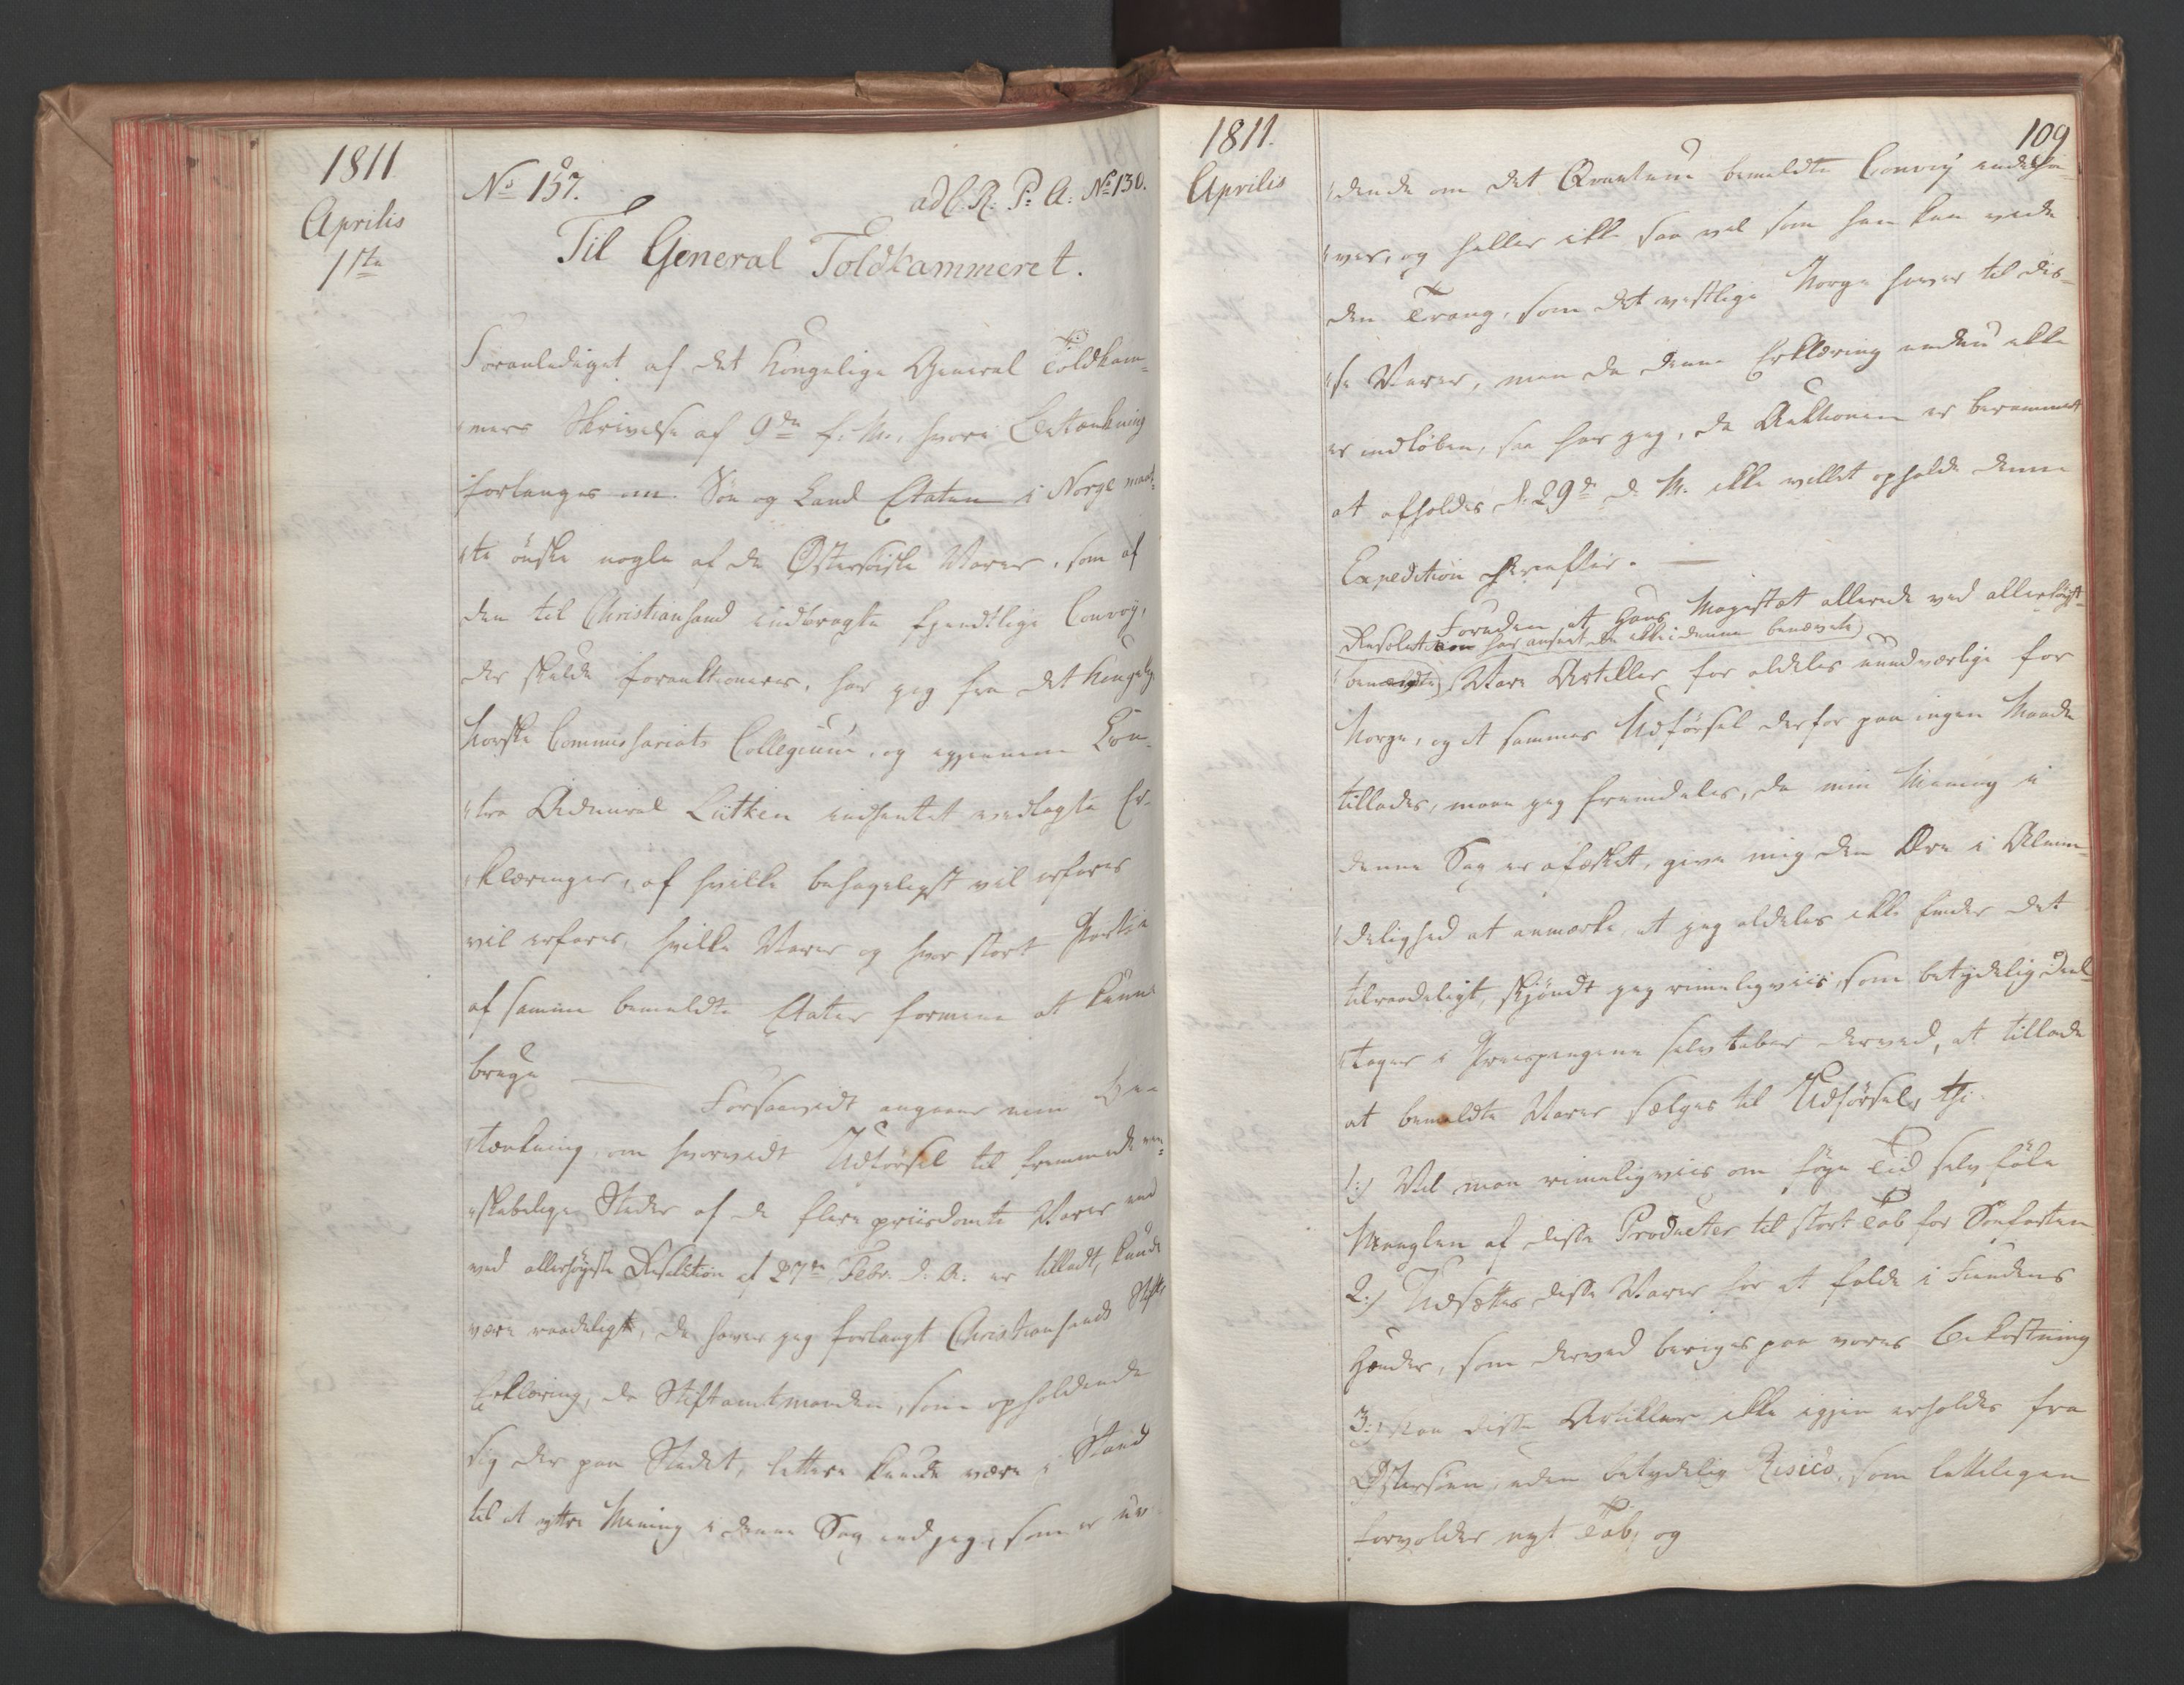 1811
Aprilis
1ste
No 157.
ad C. R. P. A. No 130.
Til General Toldkammeret.
Foranlediget af det Kongelige General Toldkam-
mers Skrivelse af 9de f. M., hvori Betænkning
forlanges om Søe og Land Etaten i Norge maat-
te ønske nogle af de Østersøiske Varer, som af
den til Christiansand indbragte fjendtlige Convoy,
der skulde forauktioneres, har jeg fra det Kongelig
Norske Commissariats Collegium, og igjennem Con-
tra Admiral Lütken indhentet vedlagte Er-
klæringer, af hvilke behageligst vil erfares
vil erfares, hvilke Varer og hvor stort Partie
af samme bemeldte Etater formene at kunne
bruge
Forsaavidt angaaer min Be-
tænkning, om hvorvidt Udførsel til fremmede ven-
skabelige Steder af de flere priisdømte Varer end
ved allerhøyeste Resolution af 27de Febr. d. A. er tilladt, kunde
være raadeligt, da haver jeg forlangt Christiansands Stifts
Erklæring, da Stiftamtmanden, som opholdende
sig der paa Stedet, lettere kunde være i Stand
til at yttre Mening i denne Sag end jeg, som er uv
1811.
Aprilis
109
dende om det Qvantum bemeldte Convoy indehol
ver, og heller ikke saa vel som han kan vide
den Trang, som det vestlige Norge haver til dis-
se Varer, men da denne Erklæring endnu ikke
er indløben, saa har jeg, da Auktionen er berammet
at afholdes d. 29de d. M. ikke villet opholde denne
Expedition herefter.
Foruden at Hans Majestæt allerede ved allerhøyst-
Resolution har anseet de ikke i denne benævnte
benævnte Vare Artikler for aldeles uundværlige for
Norge, og at sammes Udførsel derfor paa ingen Maade
tillades, maae jeg fremdeles, da min Mening i
denne Sag er æsket, give mig den Ære i Almin-
delighed at anmærke, at jeg aldeles ikke finder det
tilraadeligt, skjøndt jeg rimeligviis, som betydelig Deel-
tager i Priispengene selv taber derved, at tillade
at bemeldte Varer sælges til Udførsel, thi
1.) Vil man rimeligviis om føye Tid selv føle
Manglen af disse Producter til stort Tab for Søefarten
2.) Udsættes disse Varer for at falde i Fiendens
Hænder, som derved beriges paa vores Bekostning
3.) Kan disse Artikler ikke igjen erholdes fra
Østersøen, uden betydelig Risico, som letteligen
forvolder nyt Tab, og